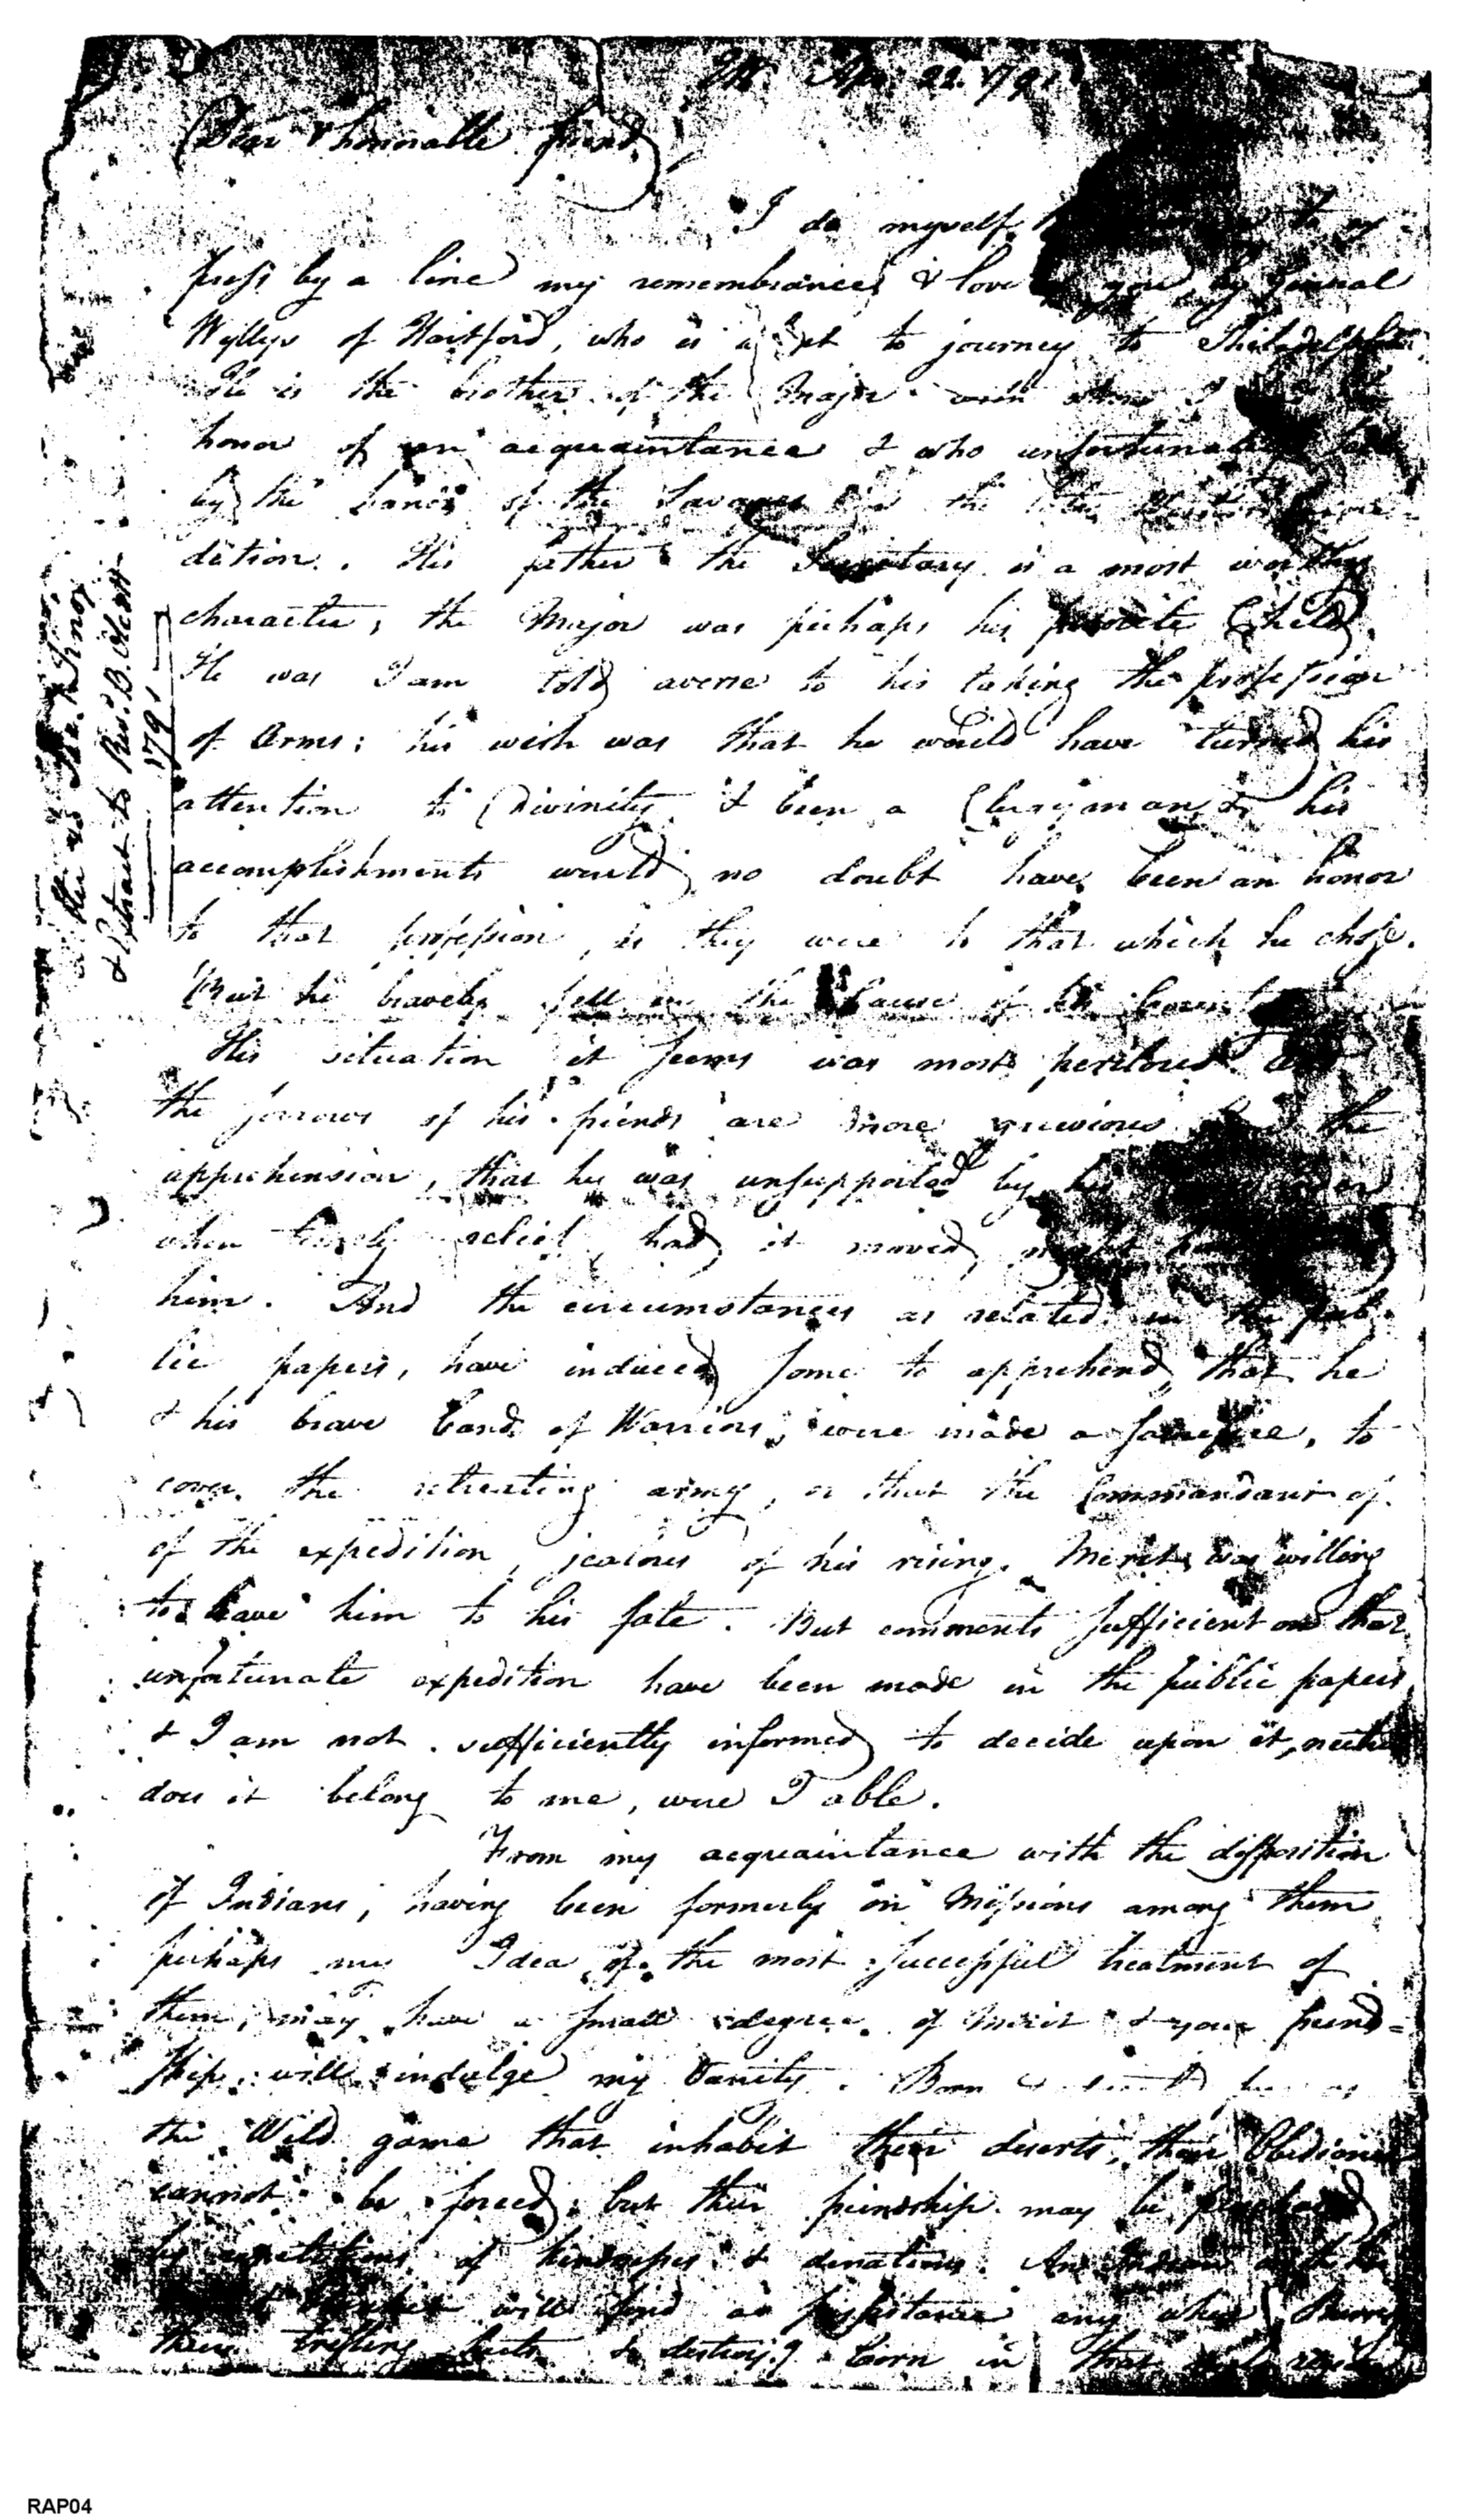 Apr. 22. 1791
Dear & honorable friend,
I do myself to ex
press by a line my remembrance & love you, by General
Wyllys of Hartford, who is to journey to Philadelphia
He is the brother of the Major with whom I
honor of an acquaintance & who unfortunately fell
by the hands of the Savages in the late
dition. His father the Secretary is a most worthy
character, the Major was perhaps his favorite Child.
He was I am told averse to his taking the profession
of Arms; his wish was that he would have turned his
attention to Divinity & been a Clergyman & his
accomplishments would no doubt have been an honor
to that profession, as they were to that which he chose.
But he bravely fell in the Cause of his Country
His situation it seems was most perilous And
the sorrows of his friends are more grievous the
apprehension, that he was unsupported by his
when timely relief, had it moved, might have
him. And the circumstances as related in the pub-
lic papers, have induced some to apprehend, that he
& his brave band of Warriors, were made a sacrifice, to
cover the retreating army, or that the Commandant of
of the expedition, jealous of his rising Merit, was willing
to leave him to his fate. But comments sufficient on that
unfortunate expedition have been made in the public papers,
& I am not sufficiently informed to decide upon it, neither
does it belong to me, were I able.
From my acquaintance with the disposition
of Indians, having been formerly on Missions among them
perhaps my Idea of the most successful treatment of
them, may have a small degree of Merit & your friend=
ship will indulge my Vanity. Born & free as
the Wild game that inhabit their deserts, their Obedience
cannot be forced, but their friendship may be purchased
by repetitions of kindnesses & donations. An Indian
will find a subsistance any where Burn
their trifling huts & destroy corn in that
a letter to Sec. Knox
& Extract to Rev. B.
1791
RAP04